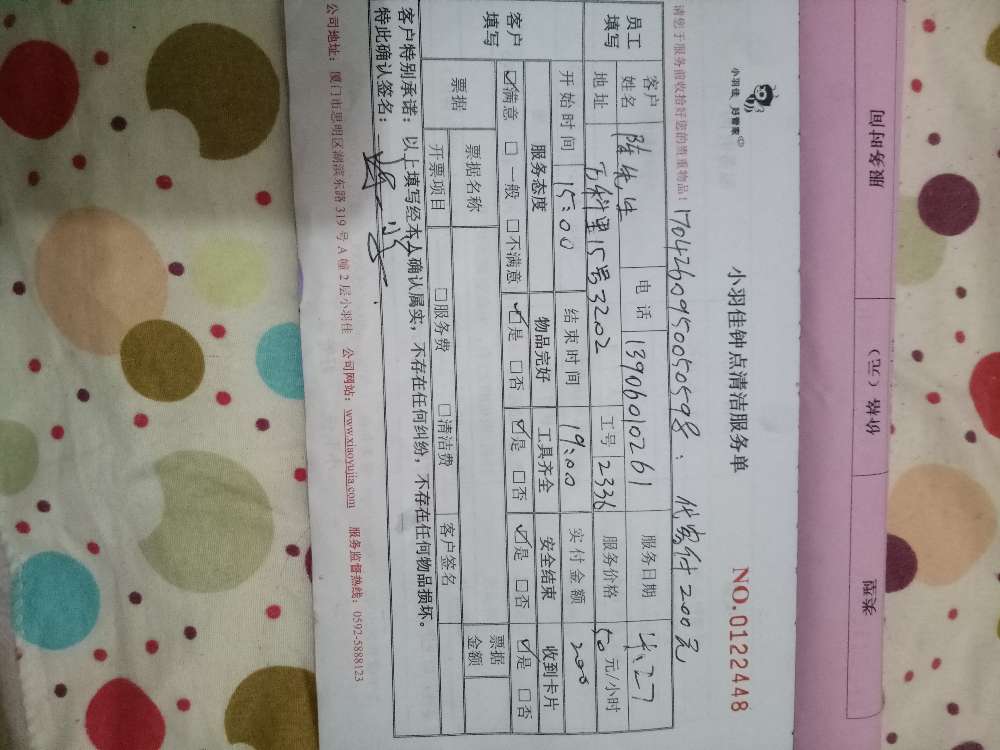 小羽佳 好管家
小羽佳钟点清洁服务单
NO.01222448
请您于服务前收拾好您的贵重物品!
1704260950050598: 代寄付200元
员工填写
客户姓名 陈先生 电话 13906010261 服务日期
地址 万科里15号3202 工号 2336 服务价格 50 元/小时
开始时间 15:00 结束时间 19:00 实付金额 200
客户填写
服务态度 物品完好 工具齐全 安全结束 收到卡片
☑满意 □一般 □不满意 ☑是 □否 ☑是 □否 ☑是 □否 ☑是 □否
票据 票据名称 票据金额
开票项目 □服务费 □清洁费 客户签名
客户特别承诺:以上填写经本人确认属实,不存在任何纠纷,不存在任何物品损坏。
特此确认签名:
公司地址:厦门市思明区湖滨东路 319 号 A 幢 2 层小羽佳 公司网站:www.xiaoyujia.com 服务监督热线:0592-5888123
服务时间
价格(元)
类型